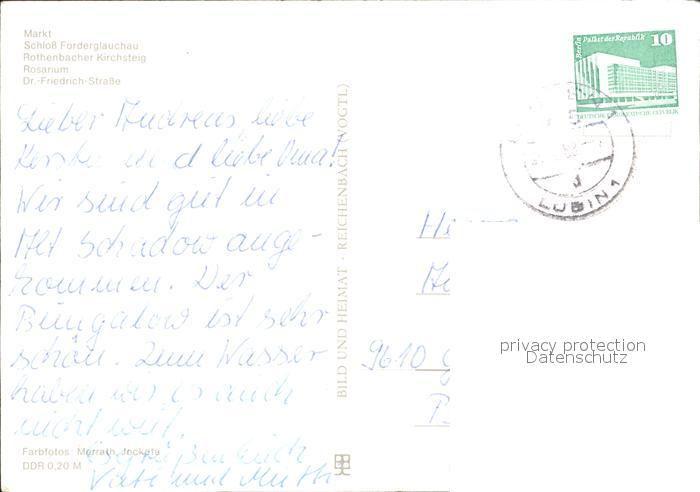 Markt
Schloß Forderglauchau
Rothenbacher Kirchsteig
Rosarium
Dr.-Friedrich-Straße
Lieber Andreas, liebe
und liebe Oma!
Wir sind gut in
Alt Schadow ange-
kommen. Der
Bungalow ist sehr
schön. Zum Wasser
haben wir es auch
nicht weit.
Es grüßen Euch
Vati und Mutti
Farbfotos: Morrath, Jocketa
DDR 0,20 M
BILD UND HEIMAT · REICHENBACH (VOGTL)
Berlin Palast der Republik 10
DEUTSCHE DEMOKRATISCHE REPUBLIK
9610
privacy protection
Datenschutz